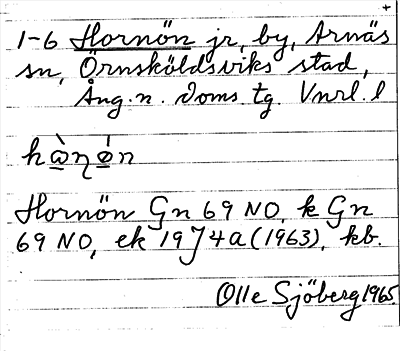 +
1-6 Hornön jr, by, Arnäs
sn, Örnsköldsviks stad,
Ång. n. doms. tg. Vnrl. l
Hornön Gn 69 NO, k Gn
69 NO, ek 19J4a (1963), kb.
Olle Sjöberg 1965